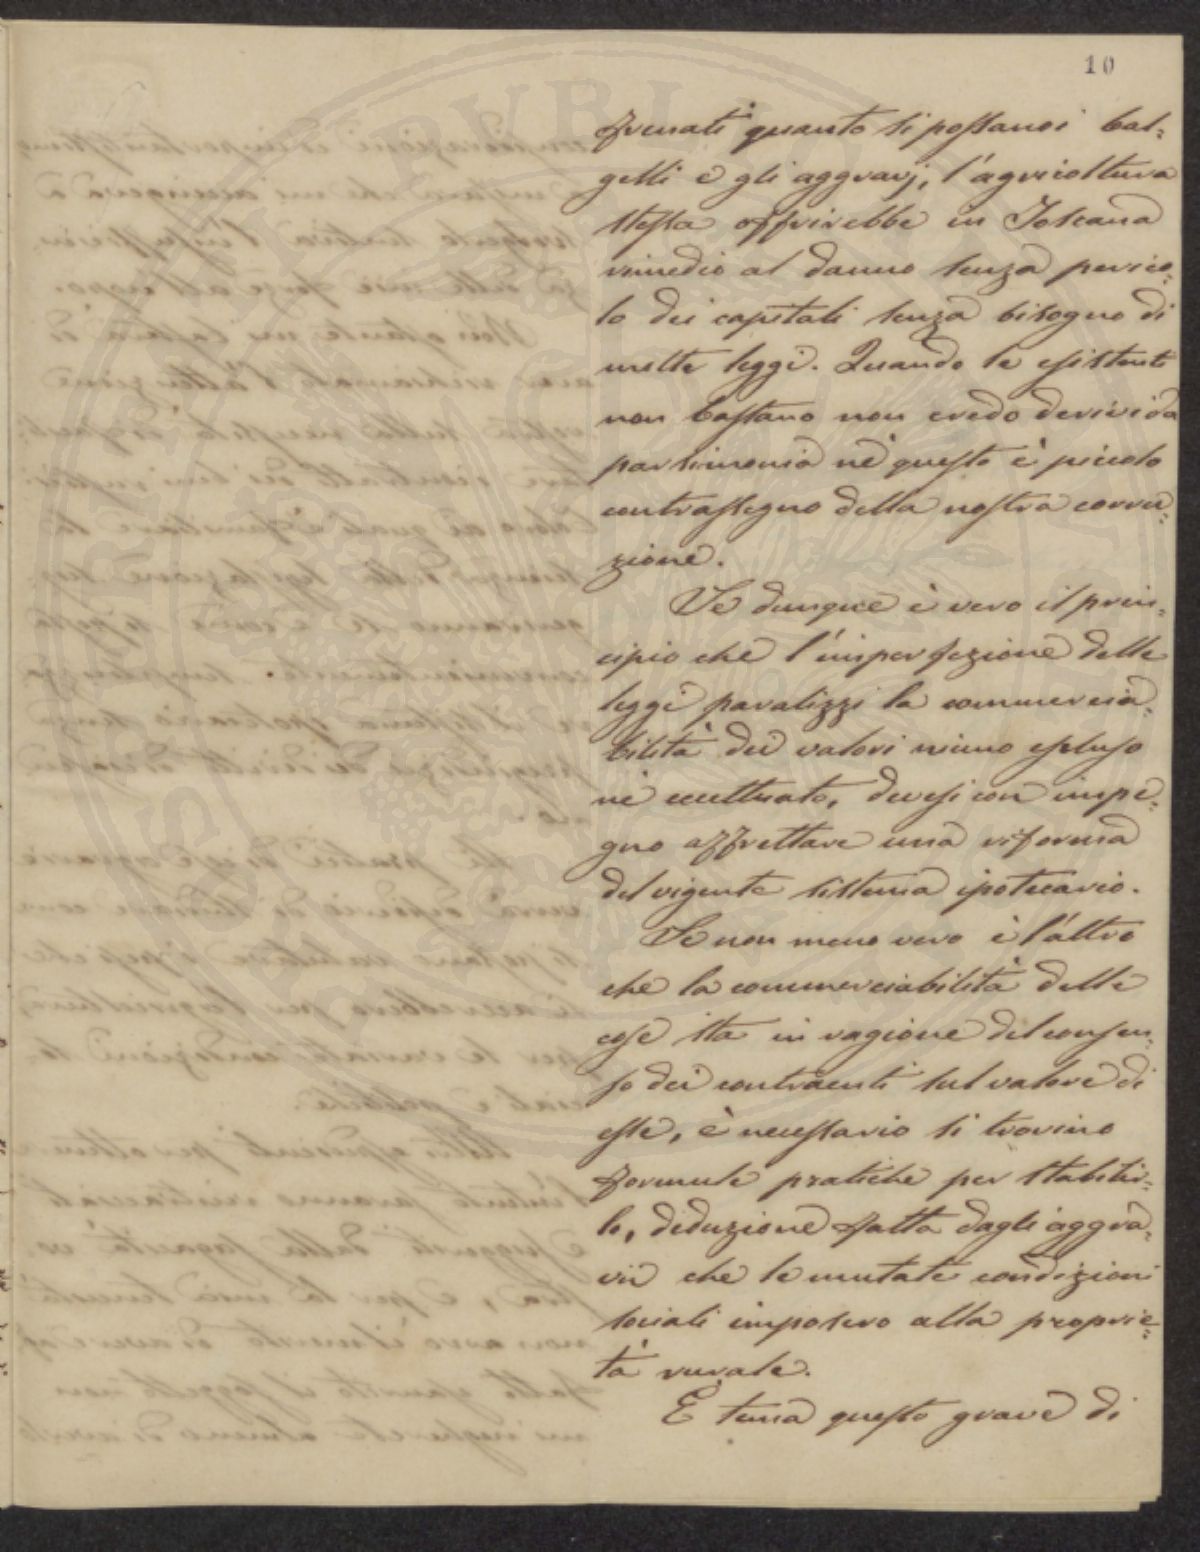 10
frenati quanto si possano i bal-
zelli e gli aggravj, l'agricoltura
stessa offrirebbe in Toscana
rimedio al danno senza perico-
lo dei capitali senza bisogno di
molte leggi. Quando le esistenti
non bastano non credo derivi da
parsimonia nè questo è piccolo
contrassegno della nostra corru-
zione.
Se dunque è vero il prin-
cipio che l'imperfezione delle
leggi paralizzi la commercia-
bilità dei valori niuno escluso
nè eccettuato, devesi con impe-
gno affrettare una riforma
del vigente sistema ipotecario.
Se non meno vero è l'altro
che la commerciabilità delle
cose sta in ragione del consen-
so dei contraenti sul valore di
esse, è necessario si trovino
formule pratiche per stabilir-
lo, deduzione fatta dagli aggra-
vii che le mutate condizioni
sociali imposero alla proprie-
tà rurale.
È tema questo grave di